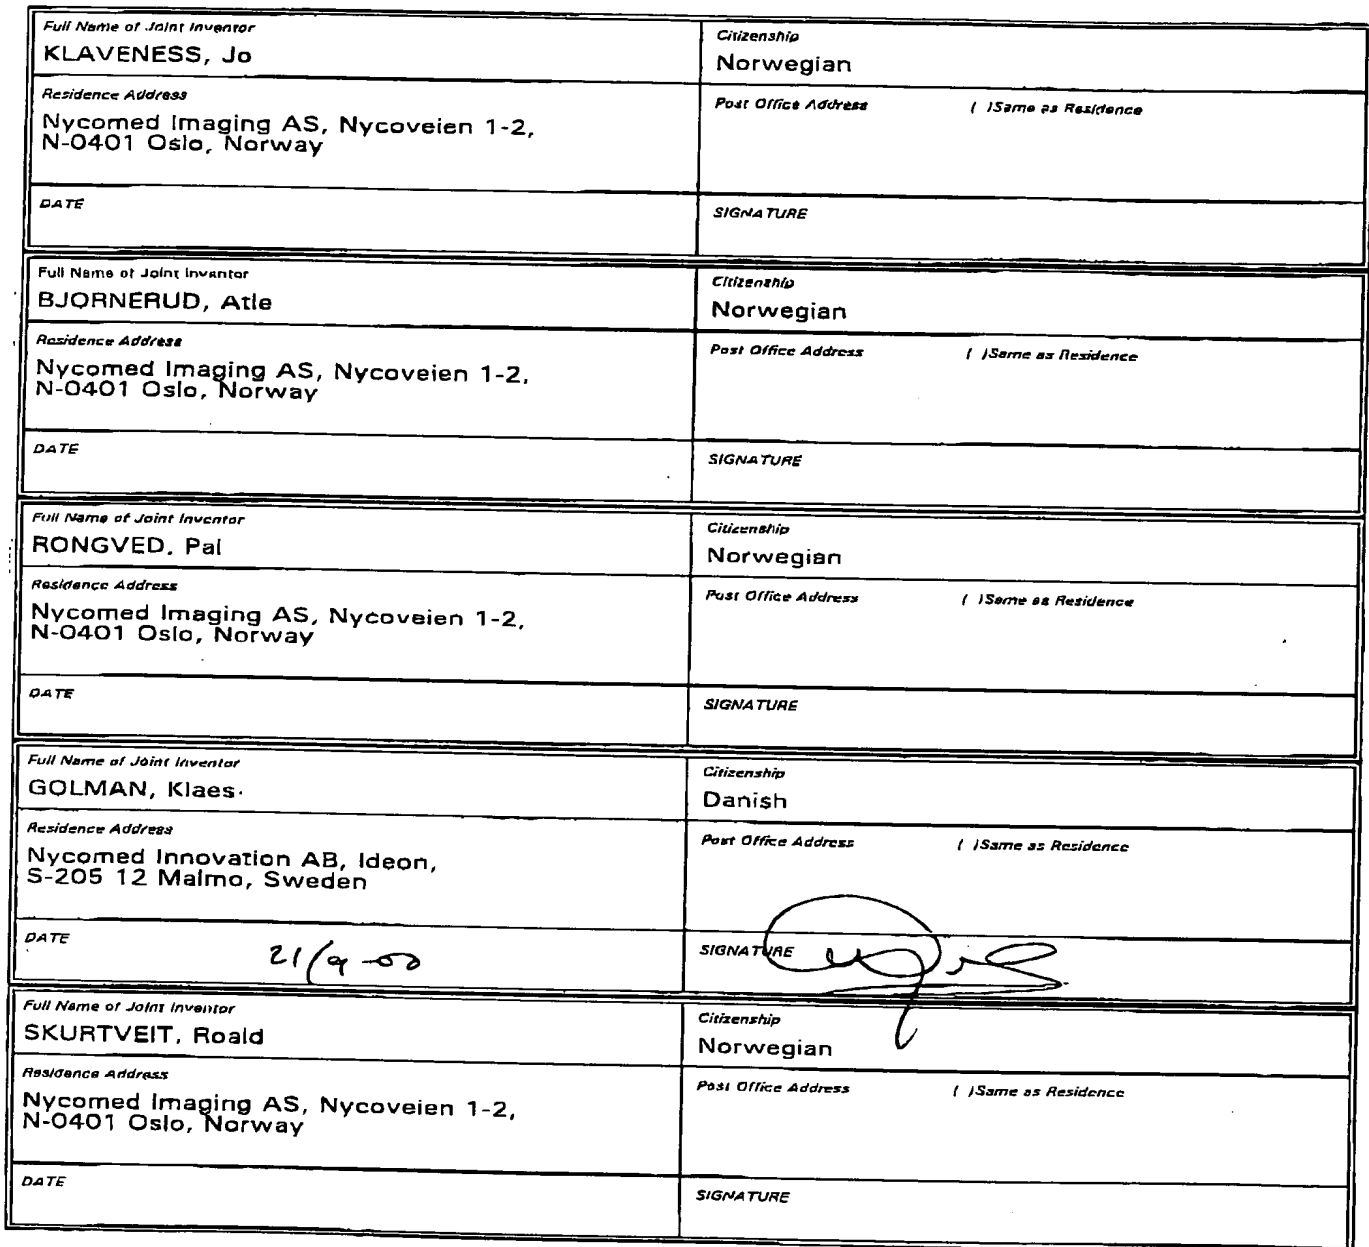 Full Name of Joint Inventor
KLAVENESS, Jo
Citizenship
Norwegian
Residence Address
Nycomed Imaging AS, Nycoveien 1-2,
N-0401 Oslo, Norway
Post Office Address ( )Same as Residence
DATE
SIGNATURE
Full Name of Joint Inventor
BJORNERUD, Atle
Citizenship
Norwegian
Residence Address
Nycomed Imaging AS, Nycoveien 1-2,
N-0401 Oslo, Norway
Post Office Address ( )Same as Residence
DATE
SIGNATURE
Full Name of Joint Inventor
RONGVED, Pal
Citizenship
Norwegian
Residence Address
Nycomed Imaging AS, Nycoveien 1-2,
N-0401 Oslo, Norway
Post Office Address ( )Same as Residence
DATE
SIGNATURE
Full Name of Joint Inventor
GOLMAN, Klaes
Citizenship
Danish
Residence Address
Nycomed Innovation AB, Ideon,
S-205 12 Malmo, Sweden
Post Office Address ( )Same as Residence
DATE 21/9-00
SIGNATURE
Full Name of Joint Inventor
SKURTVEIT, Roald
Citizenship
Norwegian
Residence Address
Nycomed Imaging AS, Nycoveien 1-2,
N-0401 Oslo, Norway
Post Office Address ( )Same as Residence
DATE
SIGNATURE